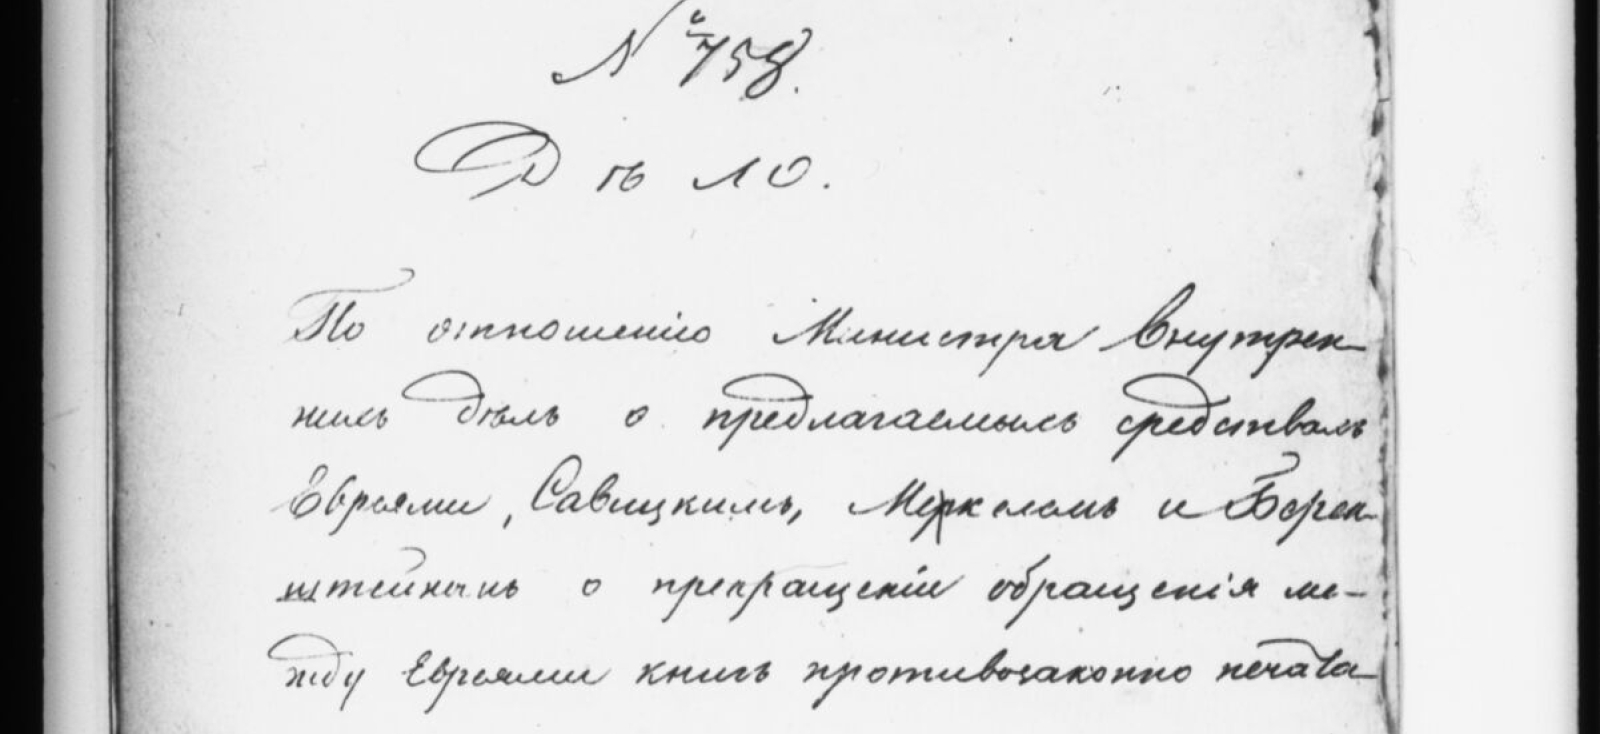 № 758.
Дѣло.
По отношенію Министра Внутрен-
нихъ дѣлъ о предлагаемыхъ средствахъ
Евреями, Савицкимъ, Меркелемъ и Берен-
штейномъ о прекращеніи обращенія ме-
жду Евреями книгъ противозаконно печата-